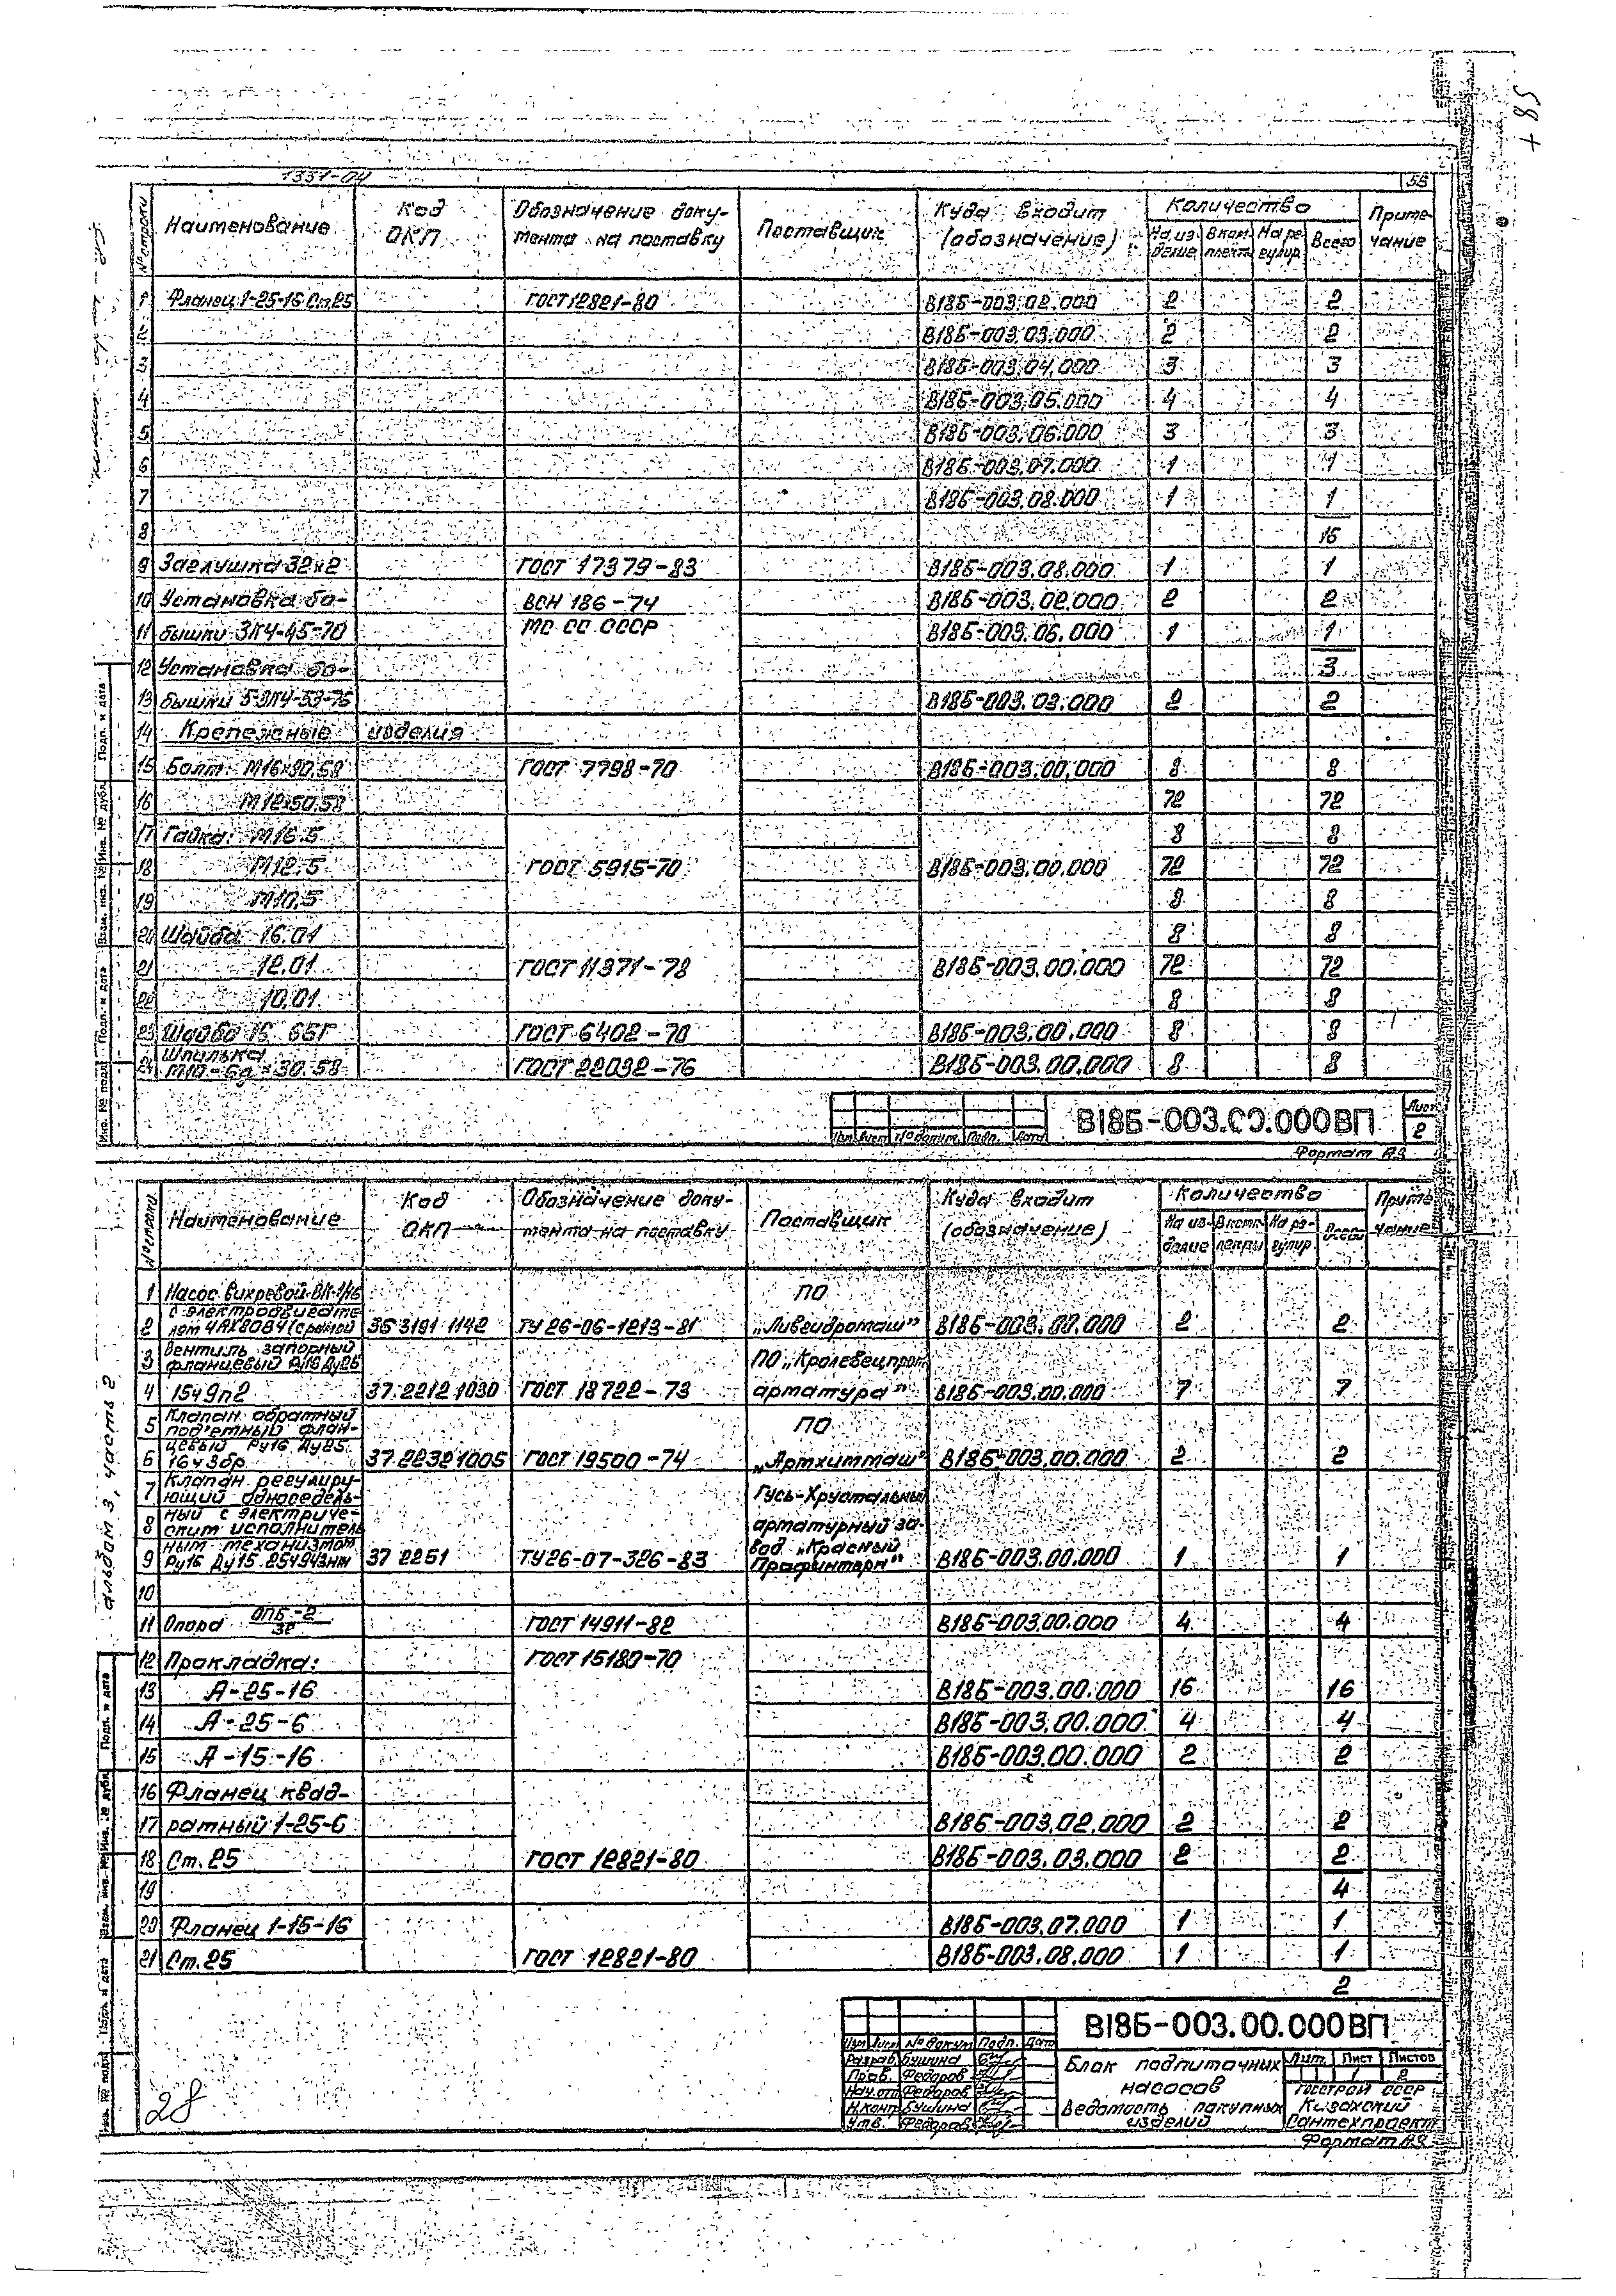 58 +
1331-04
55
№ строки
Наименование
Код ОКП
Обозначение документа на поставку
Поставщик
Куда входит (обозначение)
Количество
На изделие
В комплекты
На регулир.
Всего
Примечание
1 Фланец 1-25-16 Ст.25 ГОСТ 12821-80 В18Б-003.02.000 2 2
2 В18Б-003.03.000 2 2
3 В18Б-003.04.000 3 3
4 В18Б-003.05.000 4 4
5 В18Б-003.06.000 3 3
6 В18Б-003.07.000 1 1
7 В18Б-003.08.000 1 1
8 16
9 Заглушка 32×2 ГОСТ 17379-83 В18Б-003.08.000 1 1
10 Установка бо- ВСН 186-74 В18Б-003.02.000 2 2
11 бышки ЗК4-45-70 МС СС СССР В18Б-003.06.000 1 1
12 Установка бо- 3
13 бышки 5-ЗК4-53-76 В18Б-003.03.000 2 2
14 Крепежные изделия
15 Болт: М16×80.58 ГОСТ 7798-70 В18Б-003.00.000 8 8
16 М12×50.58 72 72
17 Гайка: М16.5 8 8
18 М12.5 ГОСТ 5915-70 В18Б-003.00.000 72 72
19 М10.5 8 8
20 Шайба 16.01 8 8
21 12.01 ГОСТ 11371-78 В18Б-003.00.000 72 72
22 10.01 8 8
23 Шайба 16 65Г ГОСТ 6402-70 В18Б-003.00.000 8 8
Шпилька
24 М10-6g×30.58 ГОСТ 22032-76 В18Б-003.00.000 8 8
Изм Лист № докум. Подп. Дата
В18Б-003.00.000ВП
Лист
2
Формат А3
Подп. и дата
Инв. № дубл.
Взам. инв. №
Подп. и дата
Инв. № подл.
№ строки
Наименование
Код ОКП
Обозначение документа на поставку
Поставщик
Куда входит (обозначение)
Количество
На изделие
В комплекты
На регулир
Всего
Примечание
1 Насос вихревой ВК-1/16 ПО
с электродвигате
2 лем 4АХ80В4 (срамой 36 3191 1142 ТУ 26-06-1213-81 „Ливгидромаш" В18Б-003.00.000 2 2
Вентиль запорный
3 фланцевый Ру16 Ду25 ПО „Кролевецпром
4 15ч9п2 37 2212 1030 ГОСТ 18722-73 арматура" В18Б-003.00.000 7 7
Клапан обратный
5 подъемный флан- ПО
цевый Ру16 Ду25
6 16ч3бр 37 2232 1005 ГОСТ 19500-74 „Артхиммаш" В18Б-003.00.000 2 2
Клапан регулиру-
7 ющий односедель- Гусь-Хрустальный
ный с электриче-
8 ским исполнитель арматурный за-
ным механизмом вод „Красный
9 Ру16 Ду15 25ч943нж 37 2251 ТУ 26-07-326-83 Профинтерн" В18Б-003.00.000 1 1
10
11 Опора ОПБ-2/32 ГОСТ 14911-82 В18Б-003.00.000 4 4
12 Прокладка: ГОСТ 15180-70
13 А-25-16 В18Б-003.00.000 16 16
14 А-25-6 В18Б-003.00.000 4 4
15 А-15-16 В18Б-003.00.000 2 2
16 Фланец квад-
17 ратный 1-25-6 В18Б-003.02.000 2 2
18 Ст.25 ГОСТ 12821-80 В18Б-003.03.000 2 2
19 4
20 Фланец 1-15-16 В18Б-003.07.000 1 1
21 Ст.25 ГОСТ 12821-80 В18Б-003.08.000 1 1
2
альбом 3, часть 2
Подп. и дата
Инв. № дубл.
Взам. инв. №
Подп. и дата
Инв. № подл.
28
Изм Лист № докум Подп. Дата
Разраб. Бушина
Пров. Федоров
Нач.отд Федоров
Н.конт Бушина
Утв. Федоров
В18Б-003.00.000ВП
Блок подпиточных насосов
Ведомость покупных изделий
Лит. Лист Листов
1 2
Госстрой СССР
Казахский
Сантехпроект
Формат А3